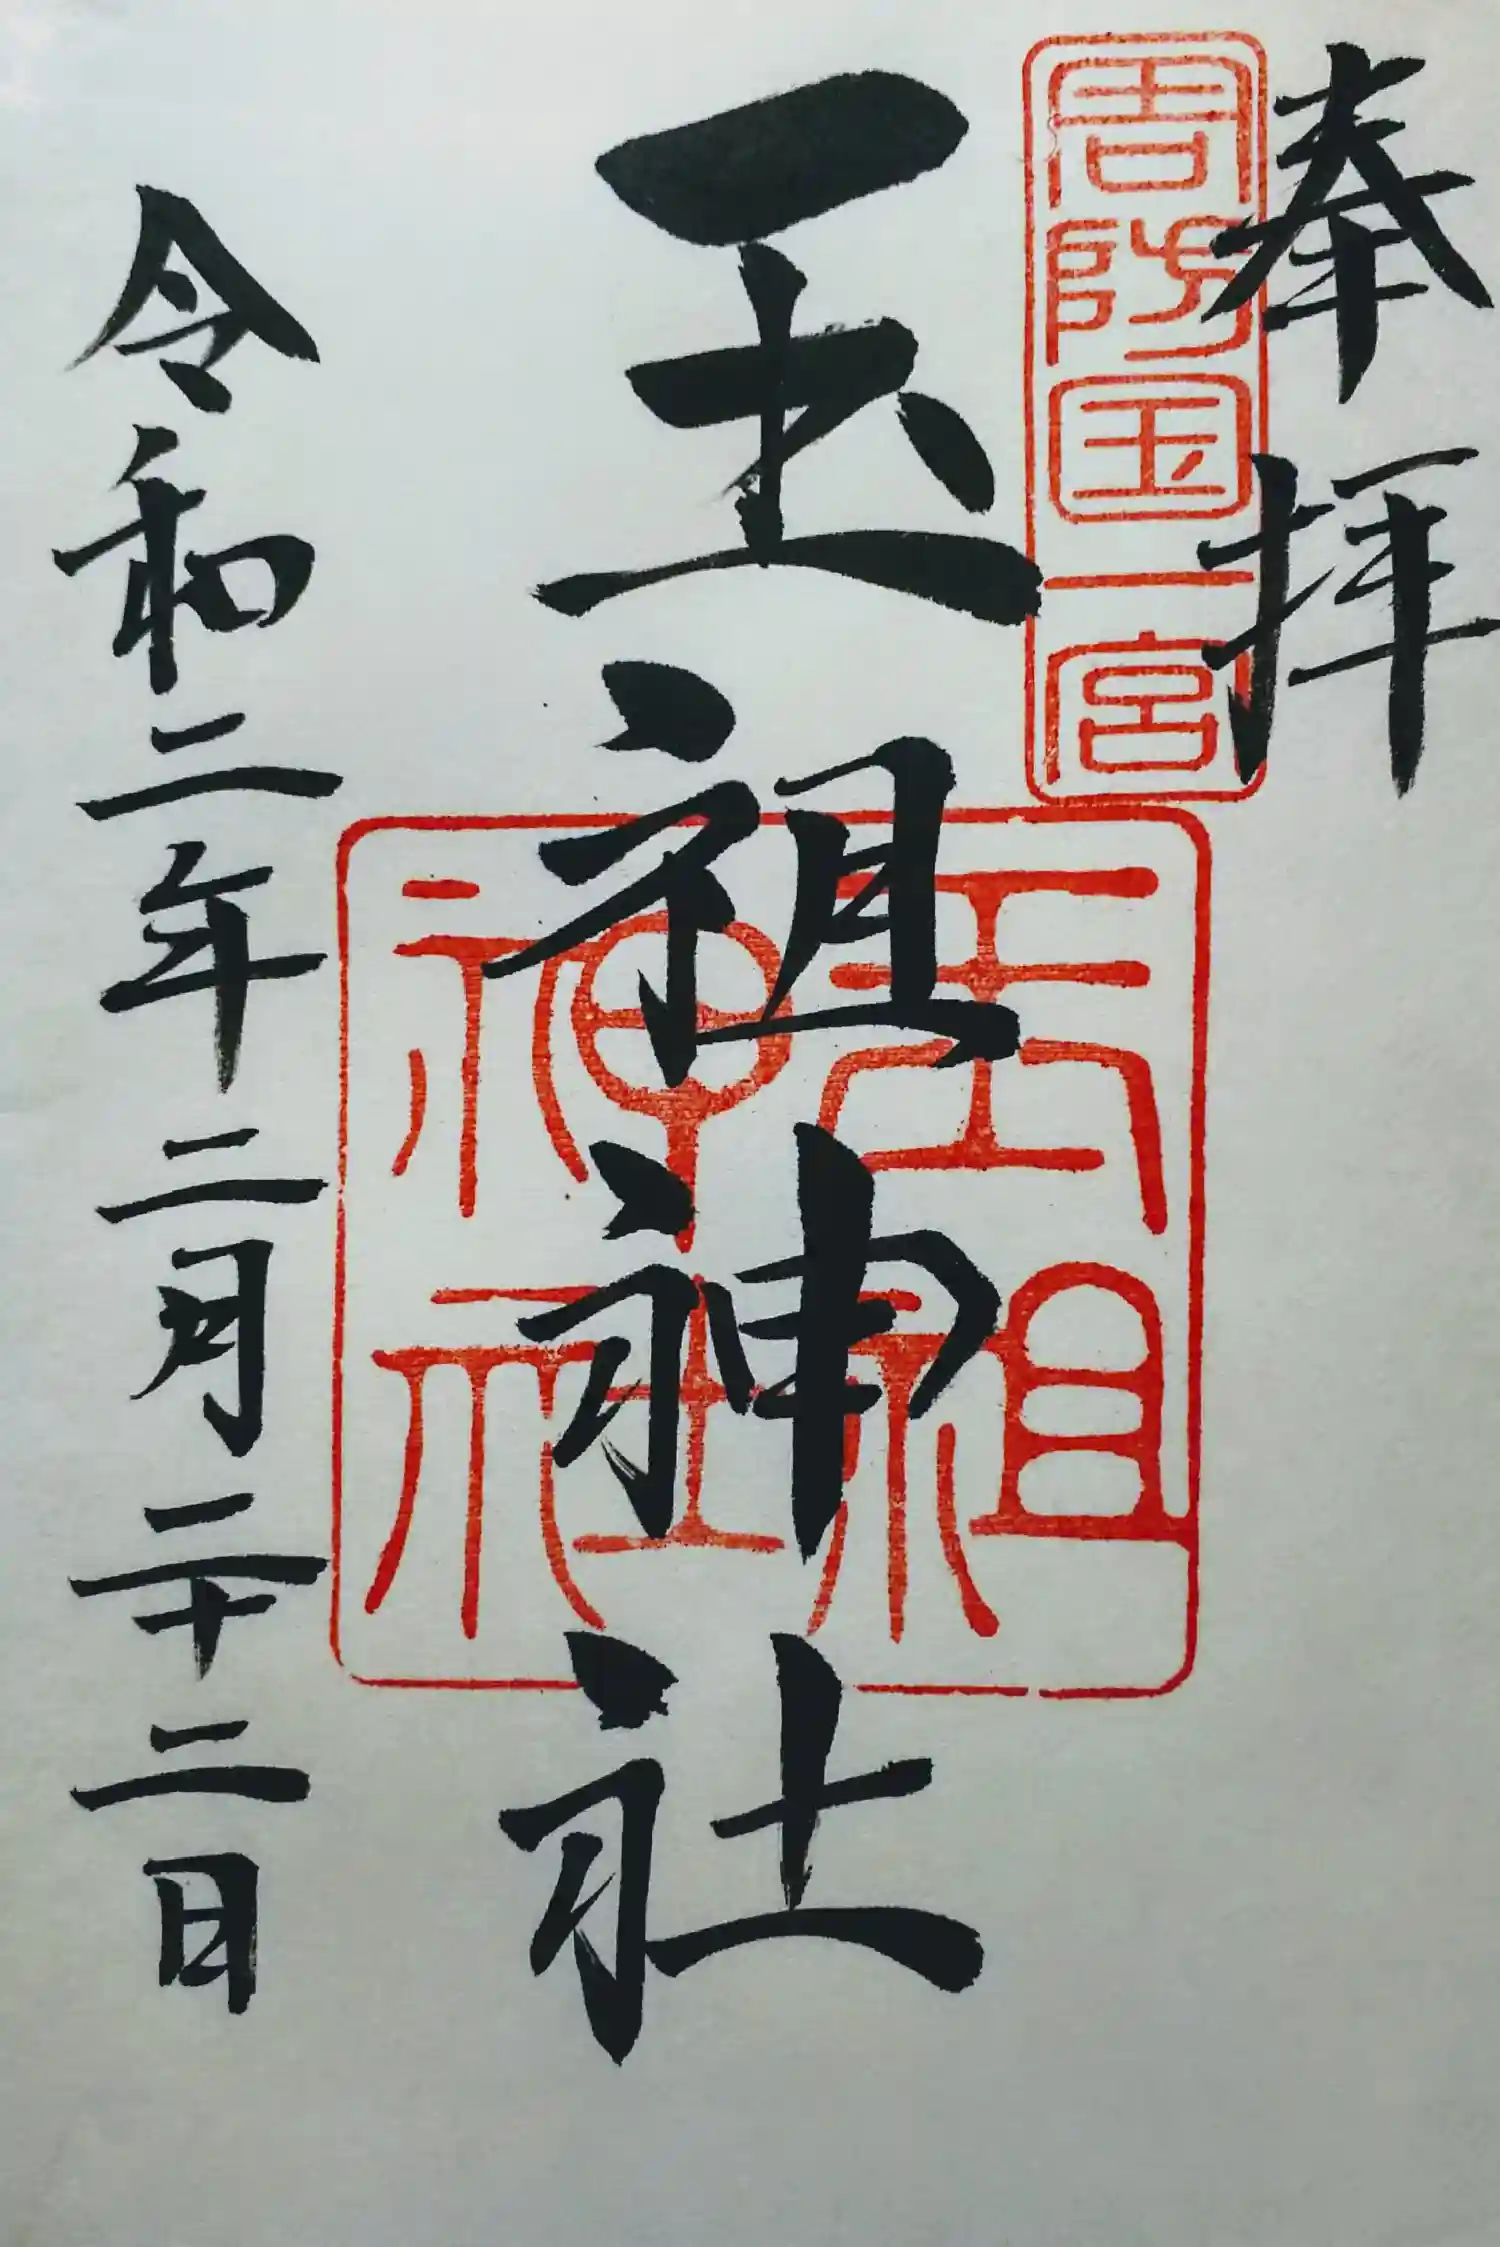 奉拝
周防国一宮
玉祖神社
玉祖
神社
令和二年二月二十二日